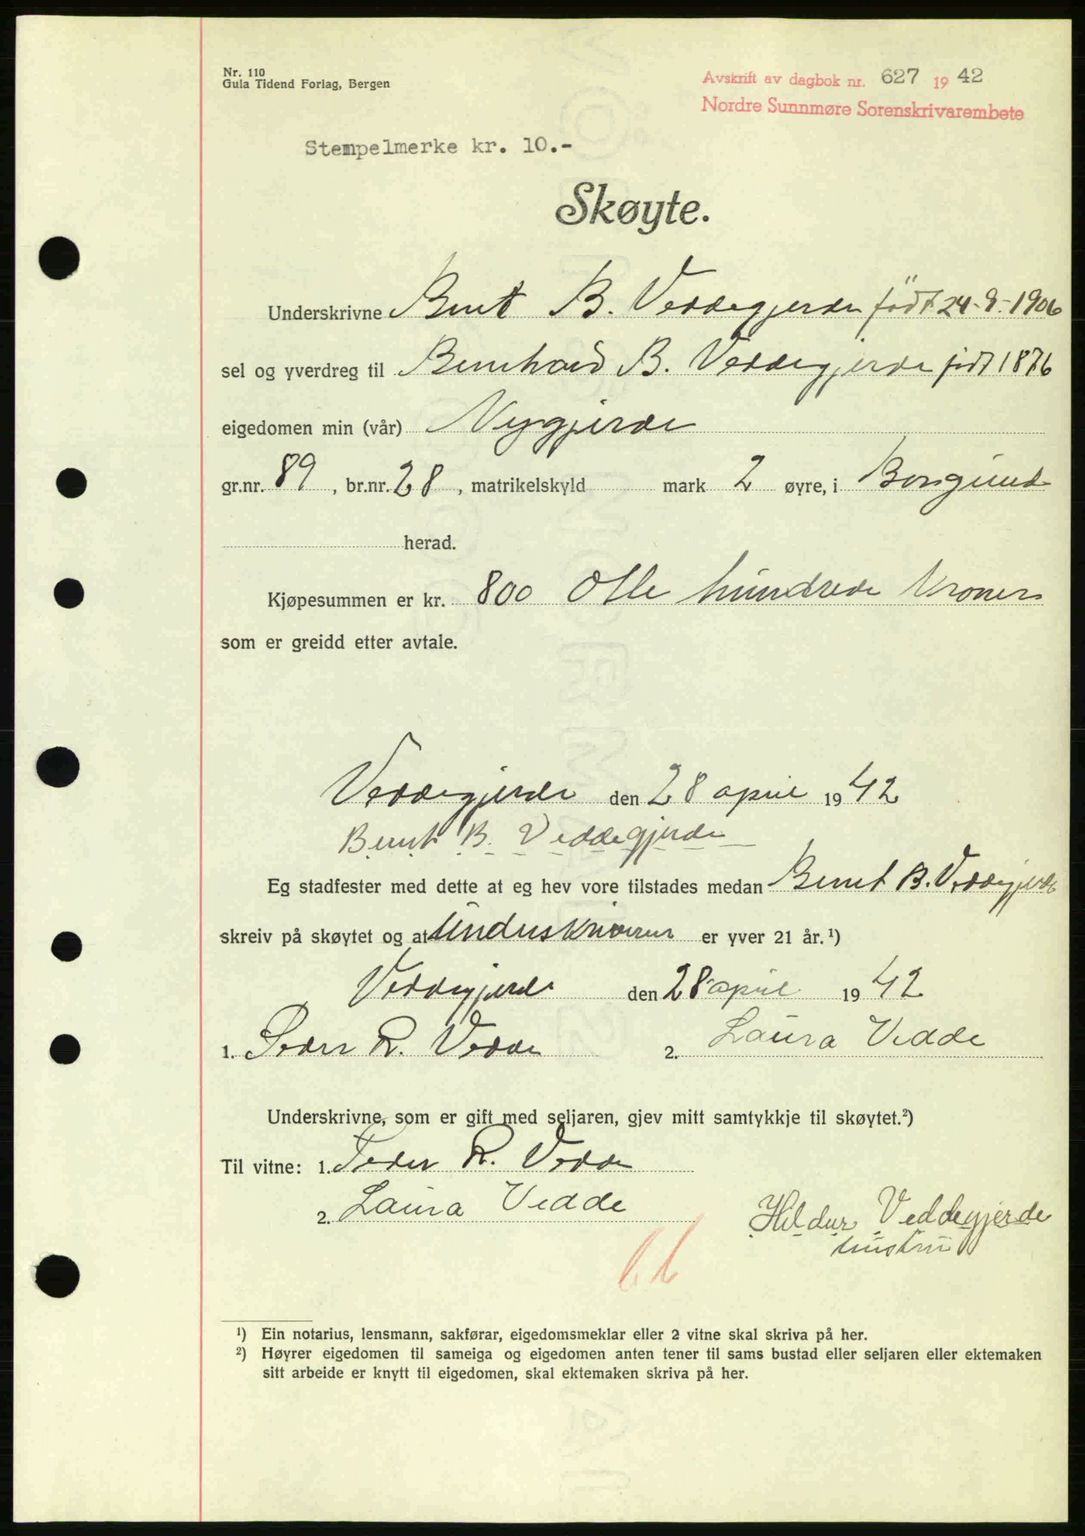 Nr. 110
Gula Tidend Forlag, Bergen
Avskrift av dagbok nr. 627 1942
Nordre Sunnmøre Sorenskrivarembete
Stempelmerke kr. 10.-
Skøyte.
Underskrivne Bernt B. Veddegjerde født 24-9-1906
sel og yverdreg til Bernhard B. Veddegjerde født 1876
eigedomen min (vår) Nygjerde
gr.nr. 89, br.nr. 28, matrikelskyld mark 2 øyre, i Borgund
herad.
Kjøpesummen er kr. 800 Otte hundrede Kroner
som er greidd etter avtale.
Veddegjerde den 28 april 1942
Bernt B. Veddegjerde
Eg stadfester med dette at eg hev vore tilstades medan Bernt B. Veddegjerde
skreiv på skøytet og at underskriveren er yver 21 år.¹)
Veddegjerde den 28 april 1942
1. Peder R. Vedde 2. Laura Vedde
Underskrivne, som er gift med seljaren, gjev mitt samtykkje til skøytet.²)
Til vitne: 1. Peder R. Vedde
2. Laura Vedde
Hildur Veddegjerde
hustru
¹) Ein notarius, lensmann, sakførar, eigedomsmeklar eller 2 vitne skal skriva på her.
²) Høyrer eigedomen til sameiga og eigedomen anten tener til sams bustad eller seljaren eller ektemaken
sitt arbeide er knytt til eigedomen, skal ektemaken skriva på her.